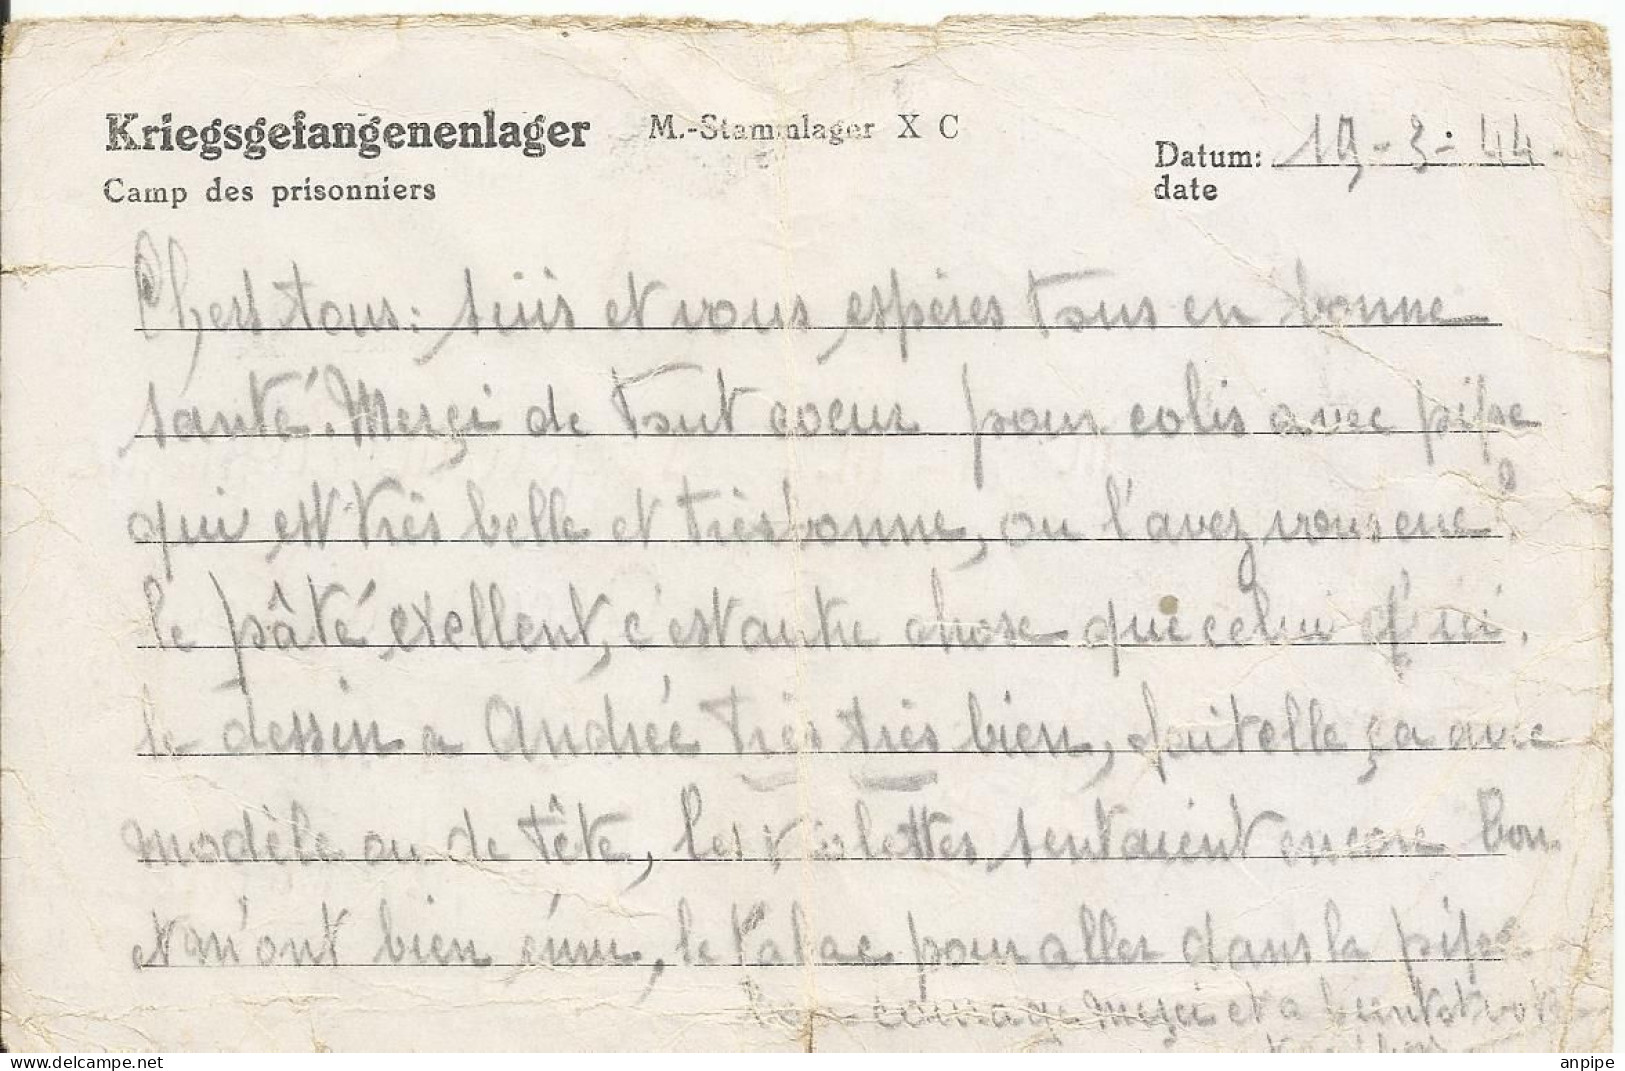 Kriegsgefangenenlager M.-Stammlager X C
Camp des prisonniers
Datum: 19-3-44.
date
Chers tous: suis et vous espères tous en bonne
santé. Merçi de tout coeur pour colis avec pipe
qui est très belle et très bonne, ou l'avez vous eue?
le pâté exellent, c'est autre chose que celui d'ici.
le dessin a Andrée très très bien, fait elle ça avec
modèle ou de tête, les violettes sentaient encore bon
et m'ont bien ému, le tabac pour aller dans la pipe
bon courage Merçi et a bientôt
anpipe